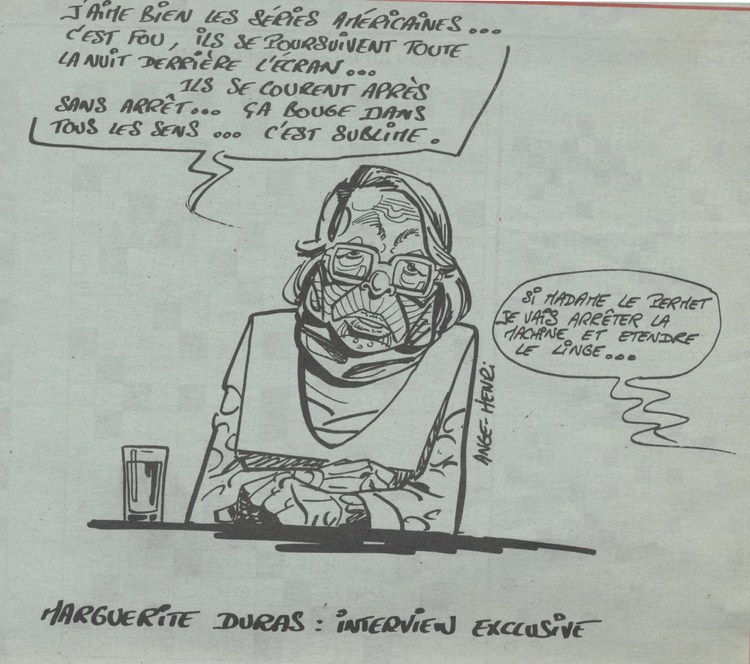 J'AIME BIEN LES SÉRIES AMÉRICAINES...
C'EST FOU, ILS SE POURSUIVENT TOUTE
LA NUIT DERRIÈRE L'ÉCRAN...
ILS SE COURENT APRÈS
SANS ARRÊT... ÇA BOUGE DANS
TOUS LES SENS... C'EST SUBLIME.
SI MADAME LE PERMET
JE VAIS ARRÊTER LA
MACHINE ET ETENDRE
LE LINGE...
ANGE-HENRI
MARGUERITE DURAS : INTERVIEW EXCLUSIVE